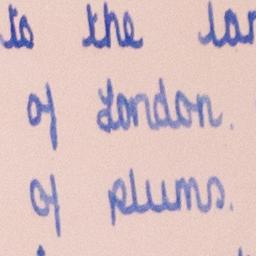 to the
of London.
of plums.